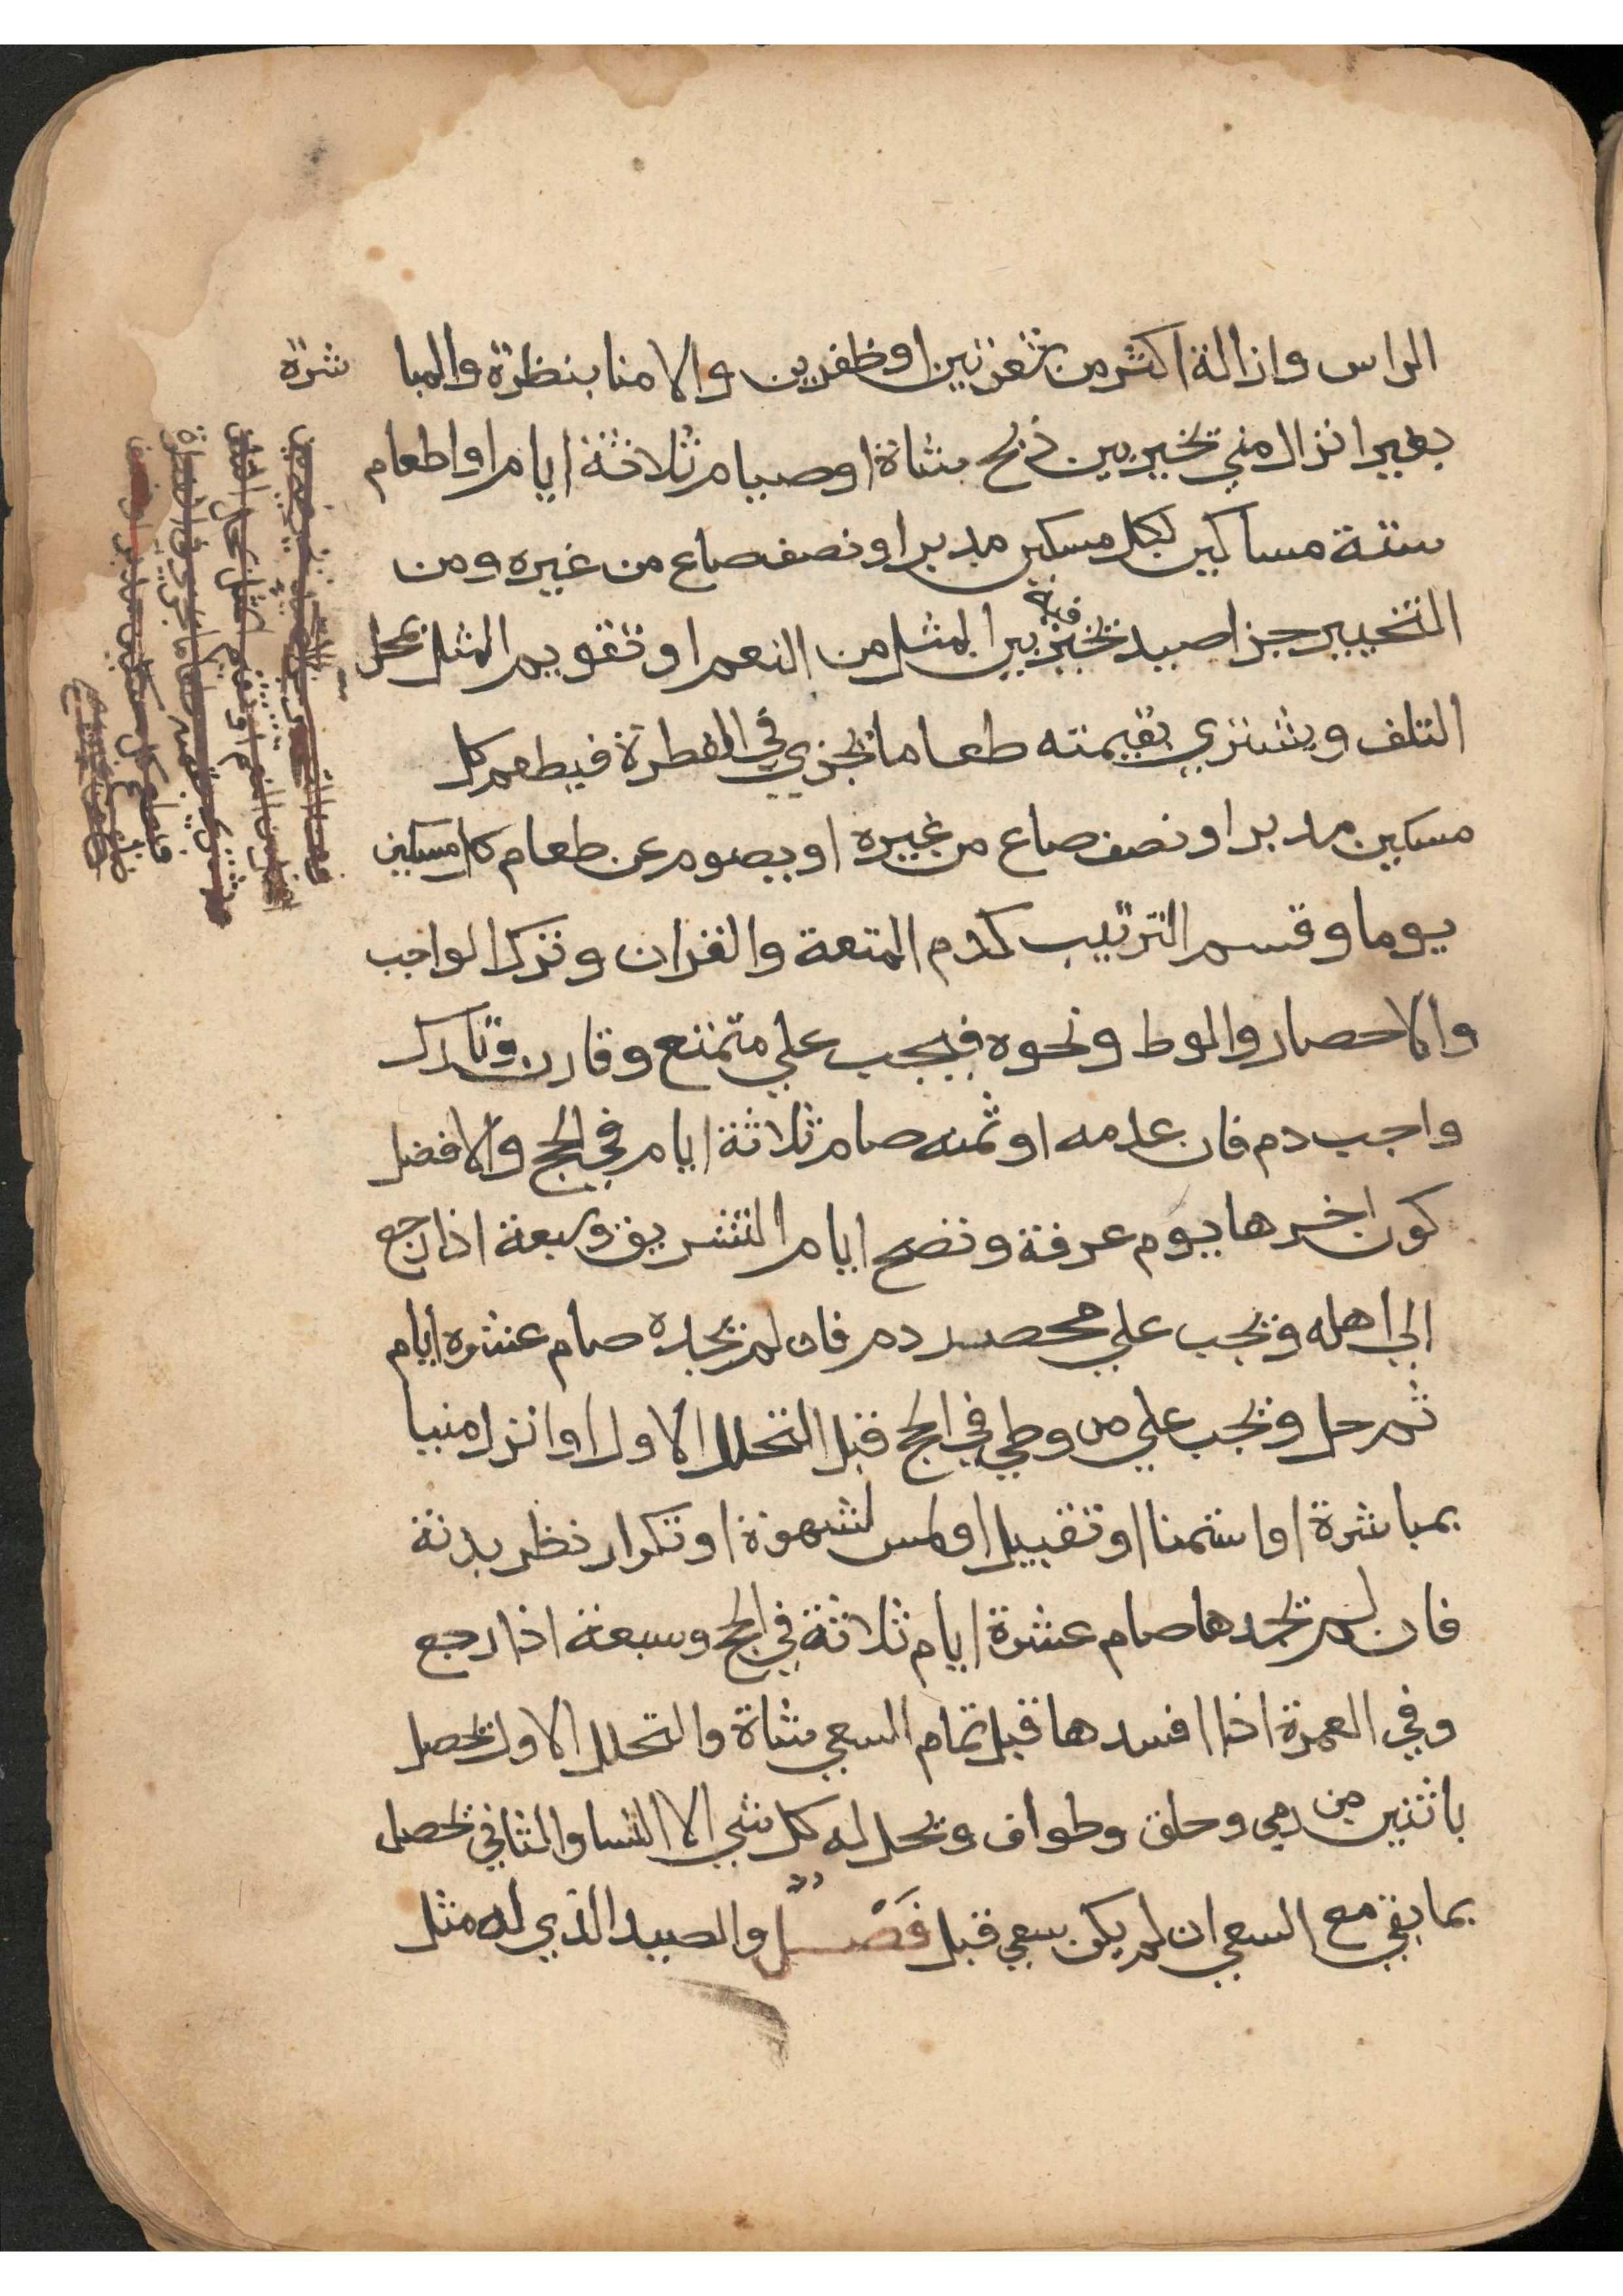 الراس وازالة اكثر من شعرتين او ظفرين والامنا بنظرة والمبا شرة
بغير انزال مني تخير بين ذبح شاة او صيام ثلاثة ايام او اطعام
ستة مساكين لكل مسكين مد بر او نصف صاع من غيره ومن
التخيير جزا صيد تخير فيه بين المثل من النعم او تقويم المثل بمحل
التلف ويشتري بقيمته طعاما تجزي في الفطرة فيطعم كل
مسكين مد بر او نصف صاع من غيره او يصوم عن طعام كل مسكين
يوما وقسم الترتيب كدم المتعة والقران وترك الواجب
والاحصار والوط ونحوه فيجب علي متمتع وقارن وتارك
واجب دم فان عدمه او ثمنه صام ثلاثة ايام في الحج والافضل
كون اخرها يوم عرفة وتصح ايام التشريق وسبعة اذا رجع
الي اهله وتجب علي محصر دم فان لم يجده صام عشره ايام
ثم حل وتجب علي من وطي في الحج قبل التحلل الاول او انزل منيا
بمباشرة او استمنا او تقبيل او لمس لشهوة او تكرار نظر بدنة
فان لم تجدها صام عشرة ايام ثلاثة في الحج وسبعة اذا رجع
وفي العمرة اذا افسدها قبل تمام السعي شاة والتحلل الاول يحصل
باثنين من رمي وحلق وطواف وتحل له كل شي الا النسا والثاني تحصل
بما بقي مع السعي ان لم يكن سعي قبل فَصْل والصيد الذي له مثل